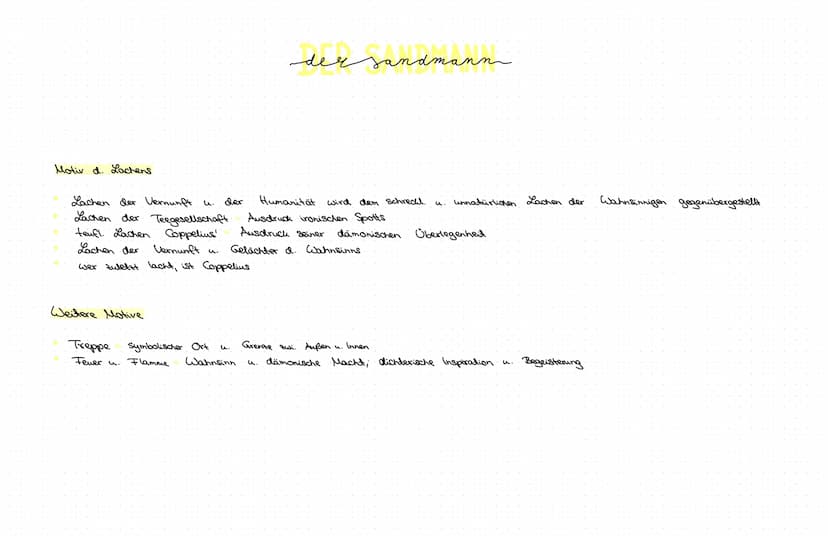 DER SANDMANN
der sandmann
Motiv d. Lachens
Lachen der Vernunft u. der Humanität wird dem schreckl. u. unnatürlichen Lachen der Wahnsinnigen gegenübergestellt
Lachen der Teegesellschaft - Ausdruck ironischen Spotts
teufl. Lachen Coppelius' - Ausdruck seiner dämonischen Überlegenheit
Lachen der Vernunft u. Gelächter d. Wahnsinns
wer zuletzt lacht, ist Coppelius
Weitere Motive
Treppe - symbolischer Ort u. Grenze zw. Außen u. Innen
Feuer u. Flamme - Wahnsinn u. dämonische Macht; dichterische Inspiration u. Begeisterung